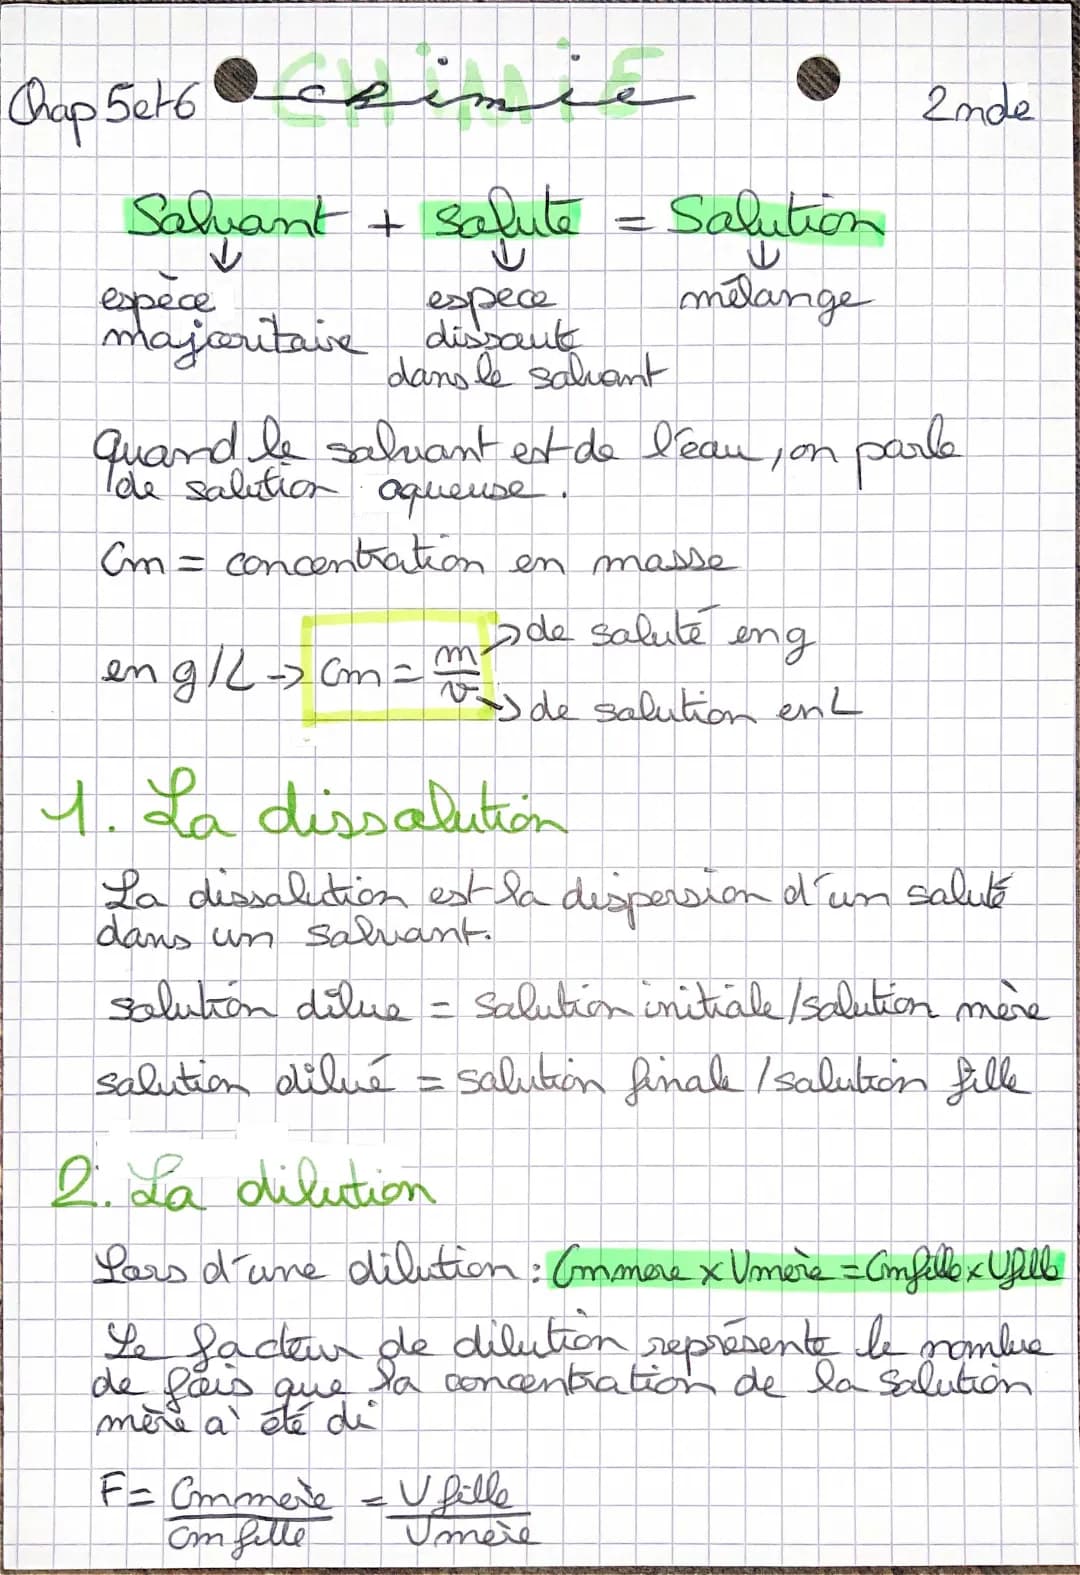 Chap 5et6 CHiMiE chimie 2nde
Solvant + soluté = Solution
espèce espece mélange
majoritaire dissoute
dans le solvant
quand le solvant est de l'eau, on parle
de solution aqueuse.
Cm = concentration en masse
en g/L → Cm = m/v → de soluté en g
→ de solution en L
1. La dissolution
La dissolution est la dispersion d'un soluté
dans un solvant.
solution dilue = solution initiale / solution mère
solution dilué = solution finale / solution fille
2. La dilution
Lors d'une dilution : Cmmere x Vmère = Cmfille x Vfille
Le facteur de dilution représente le nombre
de fois que la concentration de la solution
mère a été di
F = Cmmère/Cm fille = V fille/Vmère